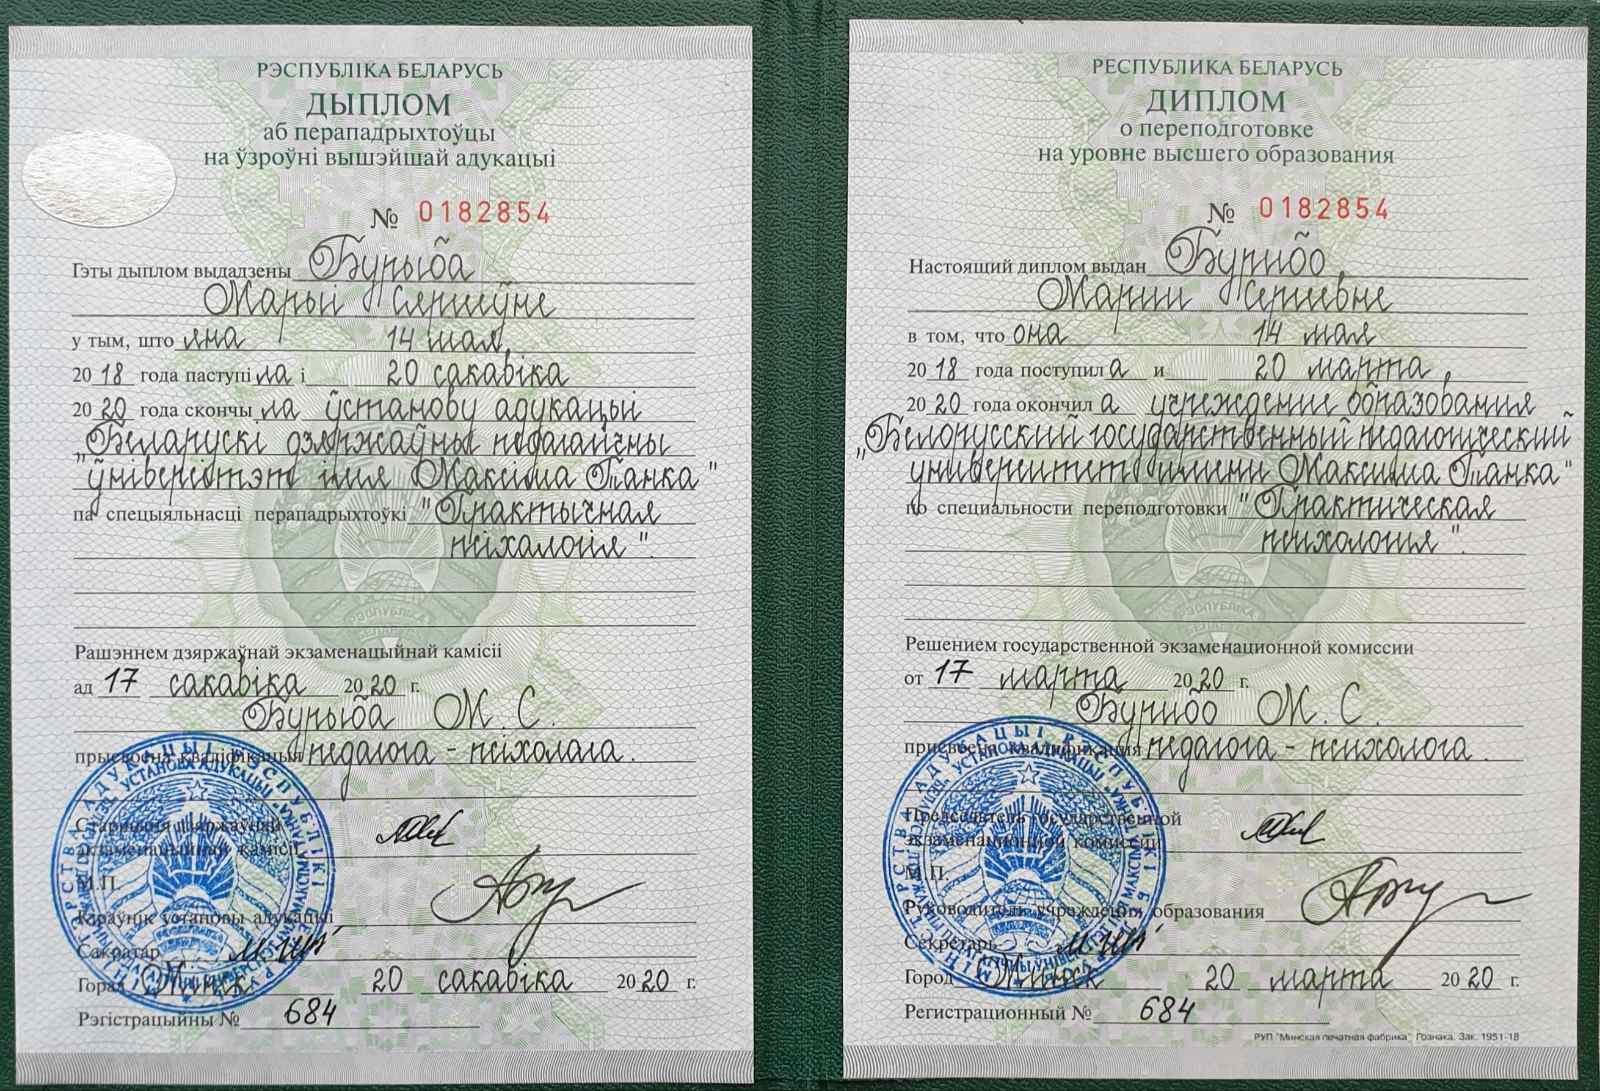 РЭСПУБЛІКА БЕЛАРУСЬ
ДЫПЛОМ
аб перападрыхтоўцы
на ўзроўні вышэйшай адукацыі
№ 0182854
Гэты дыплом выдадзены Бурыба
Марыі Сяргееўне
у тым, што яна 14 мая
2018 года паступіла і 20 сакавіка
2020 года скончыла ўстанову адукацыі
"Беларускі дзяржаўны педагагічны
ўніверсітэт імя Максіма Танка"
па спецыяльнасці перападрыхтоўкі "Практычная
псіхалогія".
РЭСПУБЛІКА
БЕЛАРУСЬ
Рашэннем дзяржаўнай экзаменацыйнай камісіі
ад 17 сакавіка 2020 г.
Бурыба М. С.
прысвоена кваліфікацыя педагога-псіхолага.
Старшыня дзяржаўнай
экзаменацыйнай камісіі
М.П.
Кіраўнік установы адукацыі
Сакратар
Горад Мінск 20 сакавіка 2020 г.
Рэгістрацыйны № 684
РЕСПУБЛИКА БЕЛАРУСЬ
ДИПЛОМ
о переподготовке
на уровне высшего образования
№ 0182854
Настоящий диплом выдан Бурибо
Марии Сергеевне
в том, что она 14 мая
2018 года поступила и 20 марта
2020 года окончила учреждение образования
"Белорусский государственный педагогический
университет имени Максима Танка"
по специальности переподготовки "Практическая
психология".
РЭСПУБЛІКА
БЕЛАРУСЬ
Решением государственной экзаменационной комиссии
от 17 марта 2020 г.
Бурибо М. С.
присвоена квалификация педагога-психолога.
Председатель государственной
экзаменационной комиссии
М.П.
Руководитель учреждения образования
Секретарь
Город Минск 20 марта 2020 г.
Регистрационный № 684
РУП "Минская печатная фабрика" Гознака. Зак. 1951-18